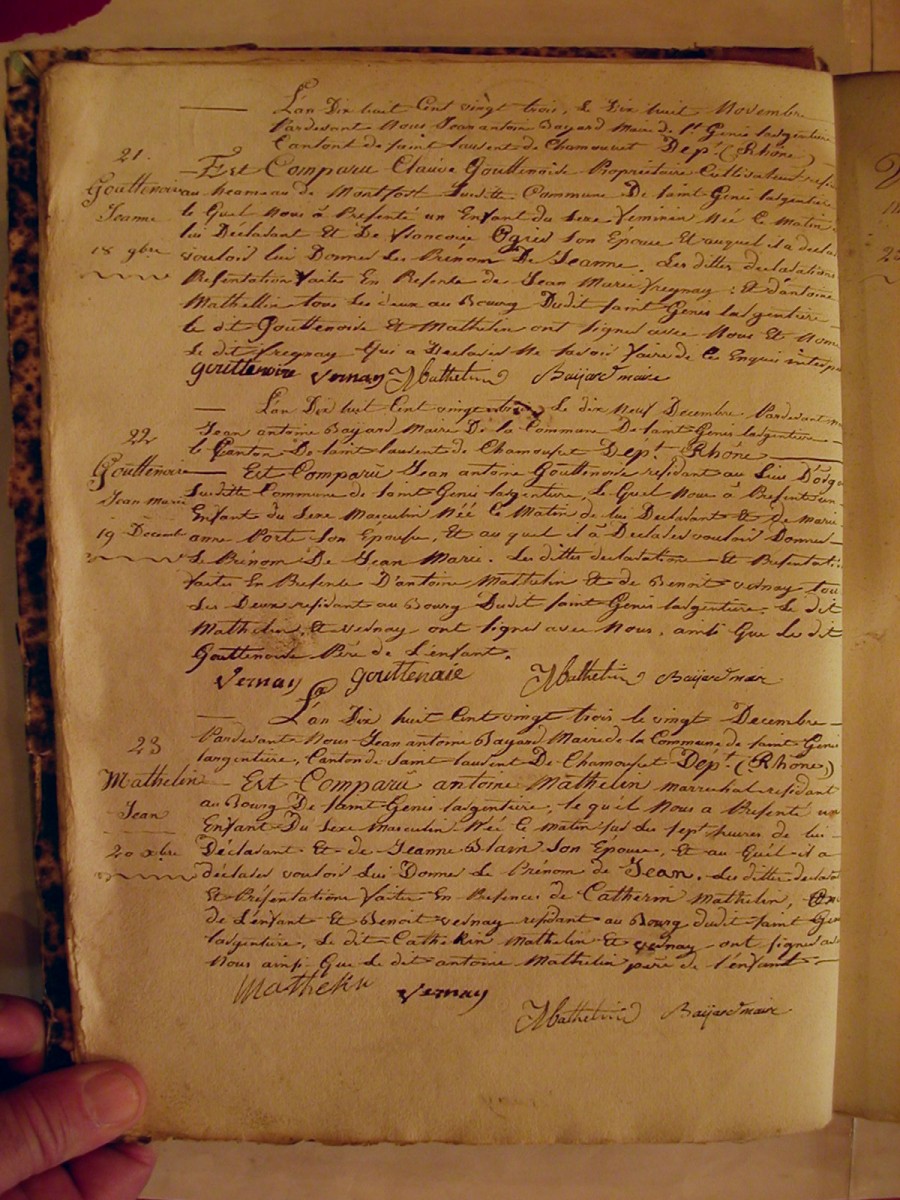 L'an Dix huit Cent vingt trois, Le Dix huit Novembre
Pardevant Nous Jean antoine Bayard Maire de St Genis largentiere
Cantont de Saint laurent de Chamousset Dept (Rhône)
21.
Est Comparu Claude Gouttenoire Propriétaire Cultivateur
Gouttenoire
au hameau de Montfort Sudite Commune De Saint Genis largentiere
Jeanne
le Quel Nous à Presenté un Enfant du Sexe Feminin Née Ce Matin
lui Declarant Et De francoise Ogier Son Epouse Et auquel il a declaré
18 9bre
vouloir lui Donner Le Prénom De Jeanne. Les dittes declarations
Presentation faites En Presente de Jean Marie fregnay : Et d'antoine
Mathellin tous Les deux au Bourg Dudit Saint Genis largentiere
le dit Gouttenoire Et Mathelin ont Signés avec Nous Et Nom
Le dit fregnay Qui a Declarer Ne Savoir faire de Ce Enquis
gouttenoire vernay Mathelin Baijard maire
L'an Dix huit Cent vingt trois Le dix Neuf Decembre Pardevant
22
Jean antoine Bayard Maire De la Commune De Saint Genis largentiere
le Canton De Saint laurent de Chamousset Dept. Rhône
Gouttenoire
Est Comparu Jean antoine Gouttenoire residant au Lieu
Jean Marie
Sudite Commune de Saint Genis largentiere, Le Quel Nous à Presenté un
Enfant du Sexe Masculin Née Ce Matin de lui Declarant Et de marie
19 Decembre
anne Porte Son Epouse, Et au quel il à Declarer vouloir Donner
Le Prénom De Jean Marie. Les dittes declaration Et Presentation
faites En Presente D'antoine Mathelin Et de Benoit vernay tous
Les Deux residant au Bourg Dudit Saint Genis largentiere. Le dit
Mathelin, Et vernay ont Signes avec Nous, ainsi Que Le dit
Gouttenoire Père de L'enfant.
vernay gouttenoire Mathelin Baijard maire
L'an Dix huit Cent vingt trois le vingt Decembre
23
Pardevant Nous Jean antoine Bayard Maire de la Commune de Saint Genis
largentiere, Canton de Saint laurent De Chamousset Dept. (Rhône)
Mathelin
Est Comparu antoine Mathelin marrechal residant
au Bourg De Saint Genis largentiere, le quel Nous a Presenté un
Jean
Enfant Du Sexe Masculin Née Ce Matin Sur Les Sept heures de lui
20 xbre
Déclarant Et de Jeanne Blain Son Epouse, Et au Quel il a
declarer vouloir Lui Donne Le Prénom de Jean. Les dittes
Et Présentations faites En Presences de Catherin Mathelin,
de L'enfant Et Benoit vernay residant au Bourg dudit Saint Genis
largentiere. Le dit Catherin Mathelin Et vernay ont Signes
Nous ainsi Que Le dit antoine Mathelin père de l'enfant
Mathelin vernay
Mathelin Baijard maire